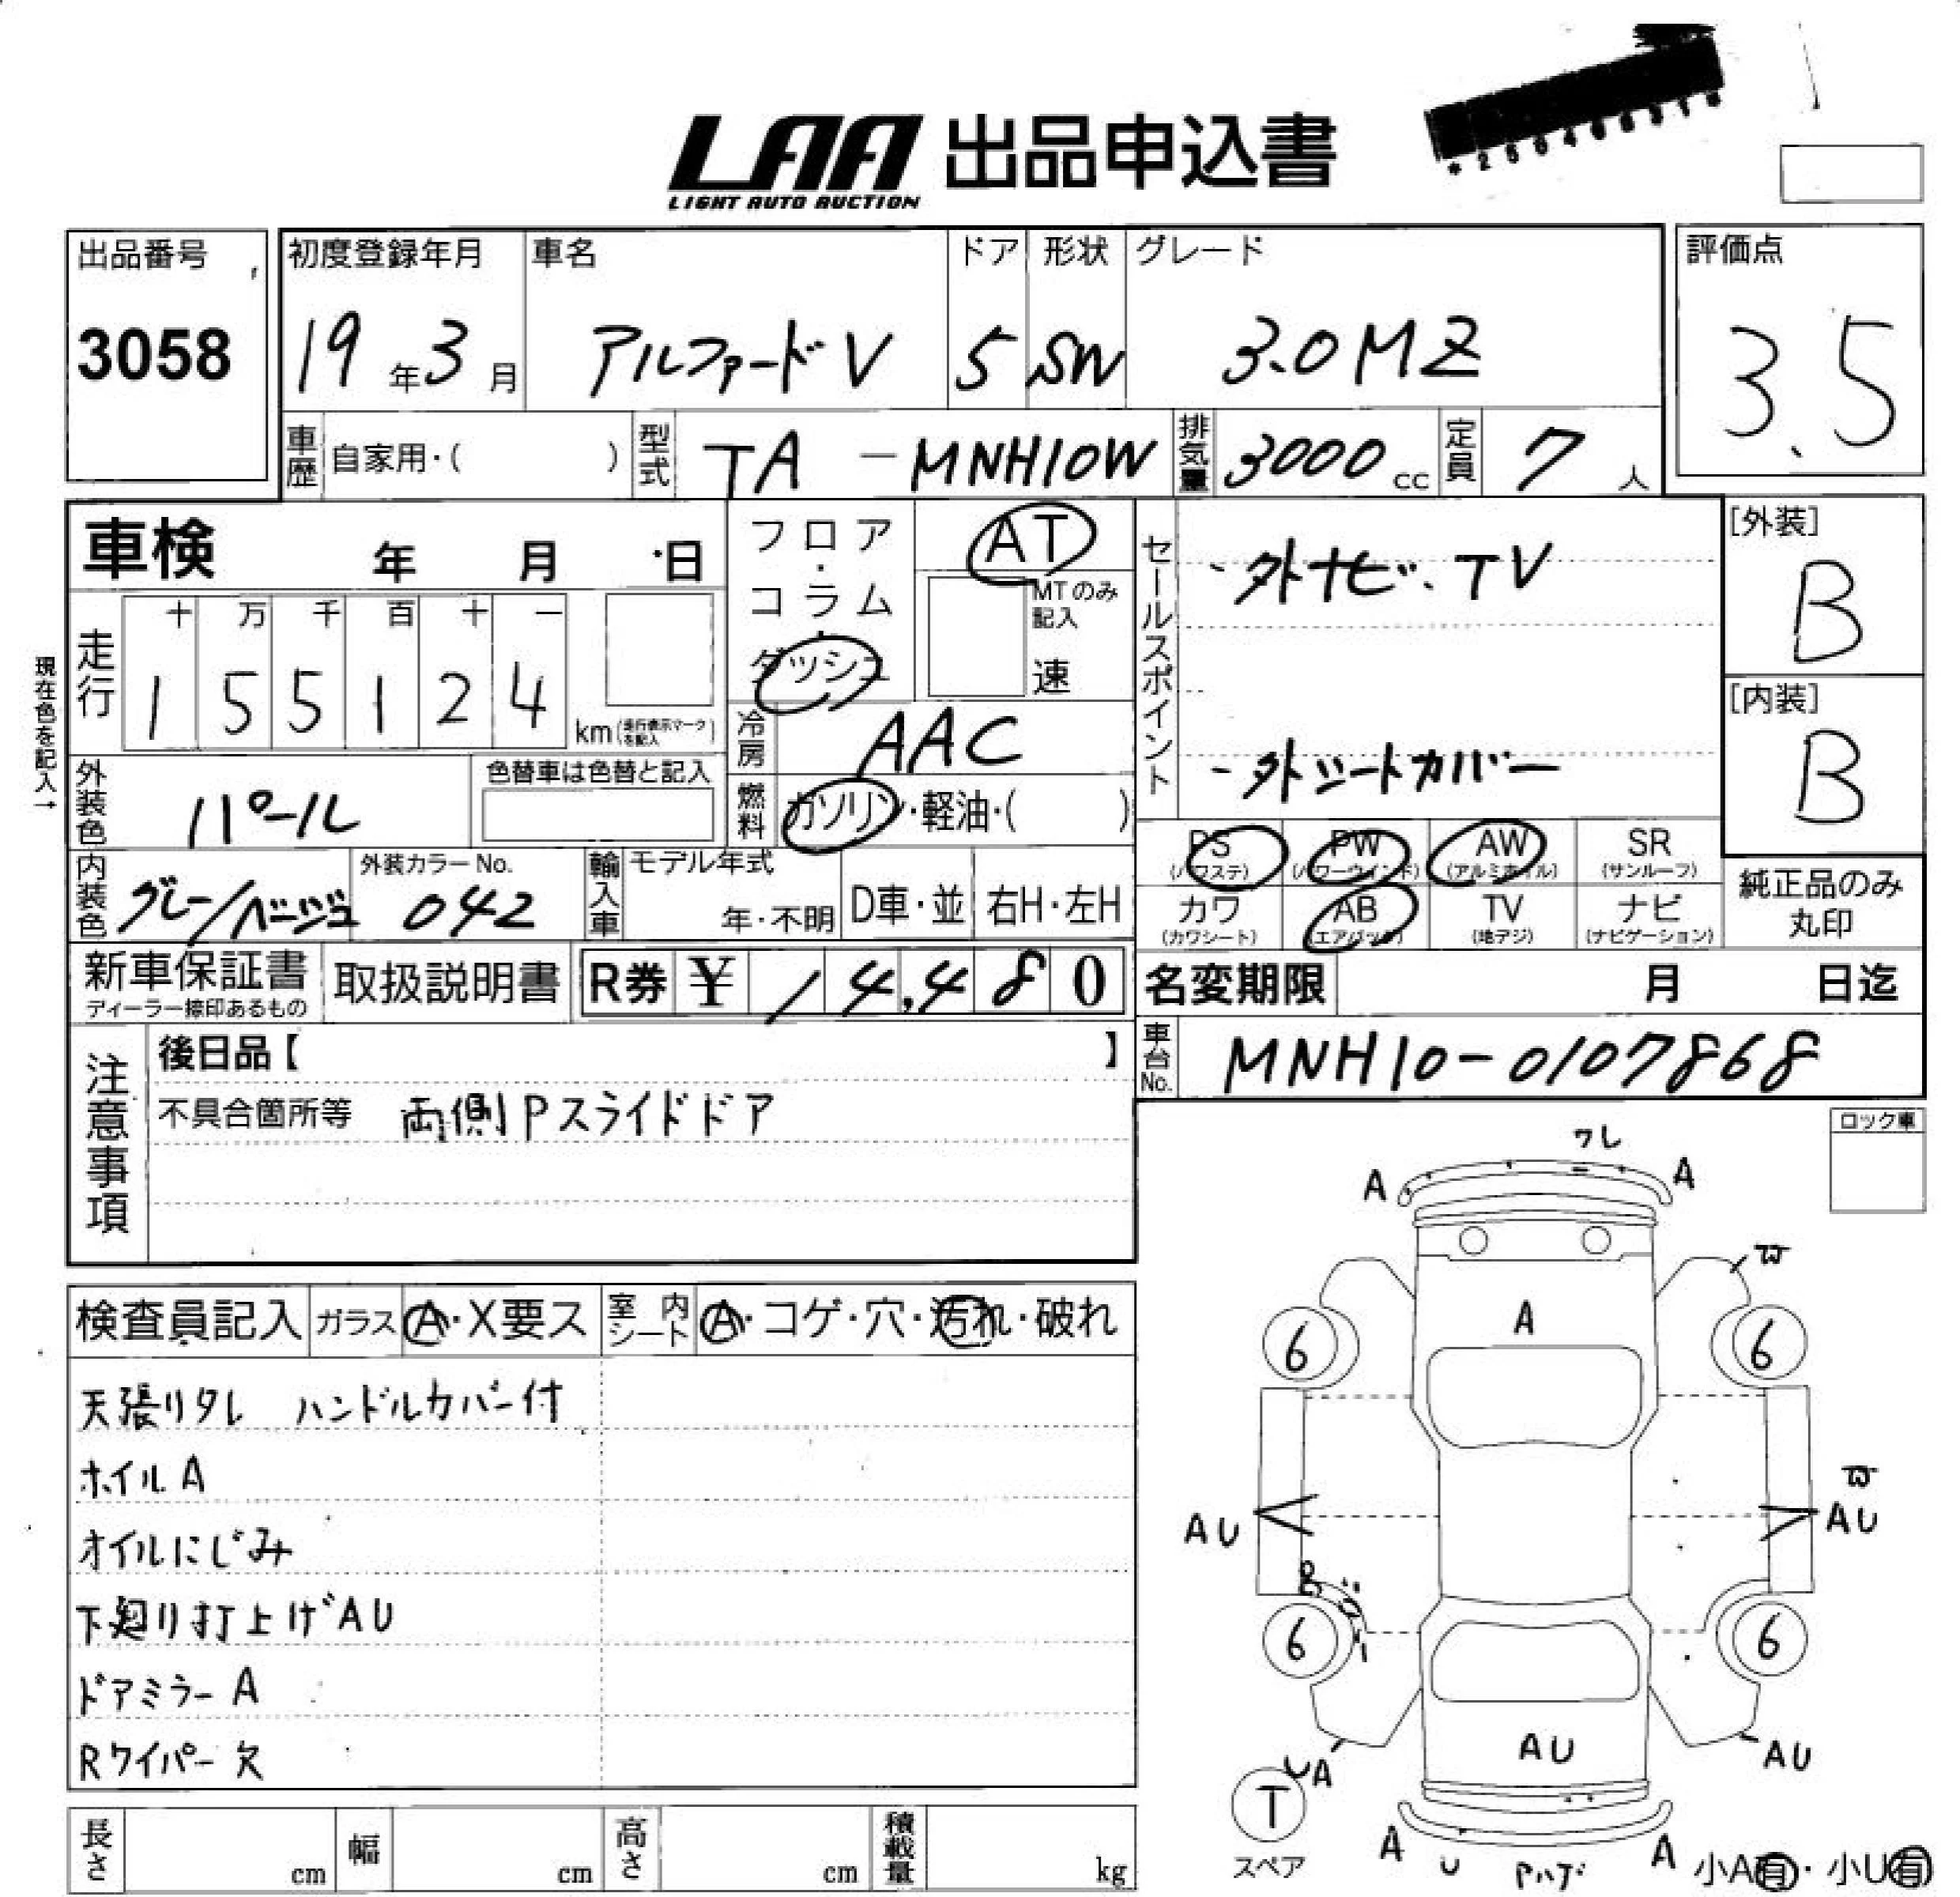 LAA 出品申込書
LIGHT AUTO AUCTION
出品番号 初度登録年月 車名 ドア 形状 グレード 評価点
3058 19年3月 アルファードV 5 SW 3.0MZ 3.5
車歴 自家用・( ) 型式 TA-MNH10W 排気量 3000cc 定員 7人
車検 年 月 日 フロア・コラム・ダッシュ AT
MTのみ記入 速
セールスポイント
・外ナビ・TV
・外シートカバー
[外装]
B
[内装]
B
現在色を記入→
走行 十 万 千 百 十 一
1 5 5 1 2 4 km(走行表示マークを記入)
冷房 AAC
外装色 パール 色替車は色替と記入
燃料 ガソリン・軽油・( )
内装色 グレー/ベージュ 外装カラーNo. 042
輸入車 モデル年式 年・不明 D車・並 右H・左H
PS (パワステ) PW (パワーウインド) AW (アルミホイル) SR (サンルーフ)
カワ (カワシート) AB (エアバック) TV (地デジ) ナビ (ナビゲーション)
純正品のみ
丸印
新車保証書 取扱説明書 R券 ¥ 14,480
ディーラー捺印あるもの
名変期限 月 日迄
車台No. MNH10-0107868
注意事項
後日品【 】
不具合箇所等 両側Pスライドドア
ロック車
検査員記入 ガラス A・X要ス 室内シート A・コゲ・穴・汚れ・破れ
天張りタレ ハンドルカバー付
ホイルA
オイルにじみ
下廻り打上げAU
ドアミラーA
Rワイパー欠
ワレ
A A
A
6 6
AU AU
6 6
UA AU AU
T
スペア
A U A
小A有・小U有
長さ cm 幅 cm 高さ cm 積載量 kg